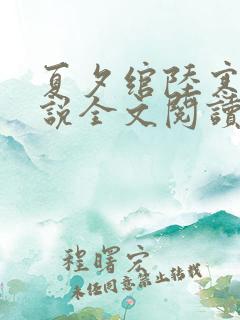 夏夕绾陆寒
説全文閱讀
程曙宏
未经同意禁止转载